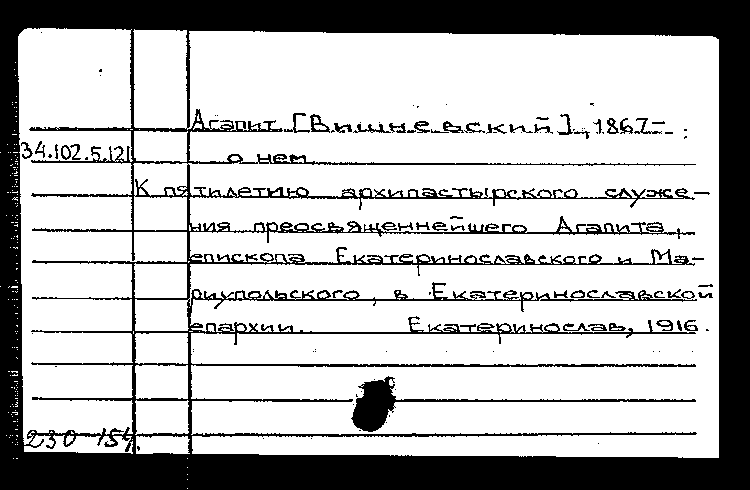 Агапит [Вишневский], 1867- :
34.102.5.121 о нем
К пятилетию архипастырского служе-
ния преосвященнейшего Агапита,
епископа Екатеринославского и Ма-
риупольского, в Екатеринославской
епархии. Екатеринослав, 1916.
230 154.